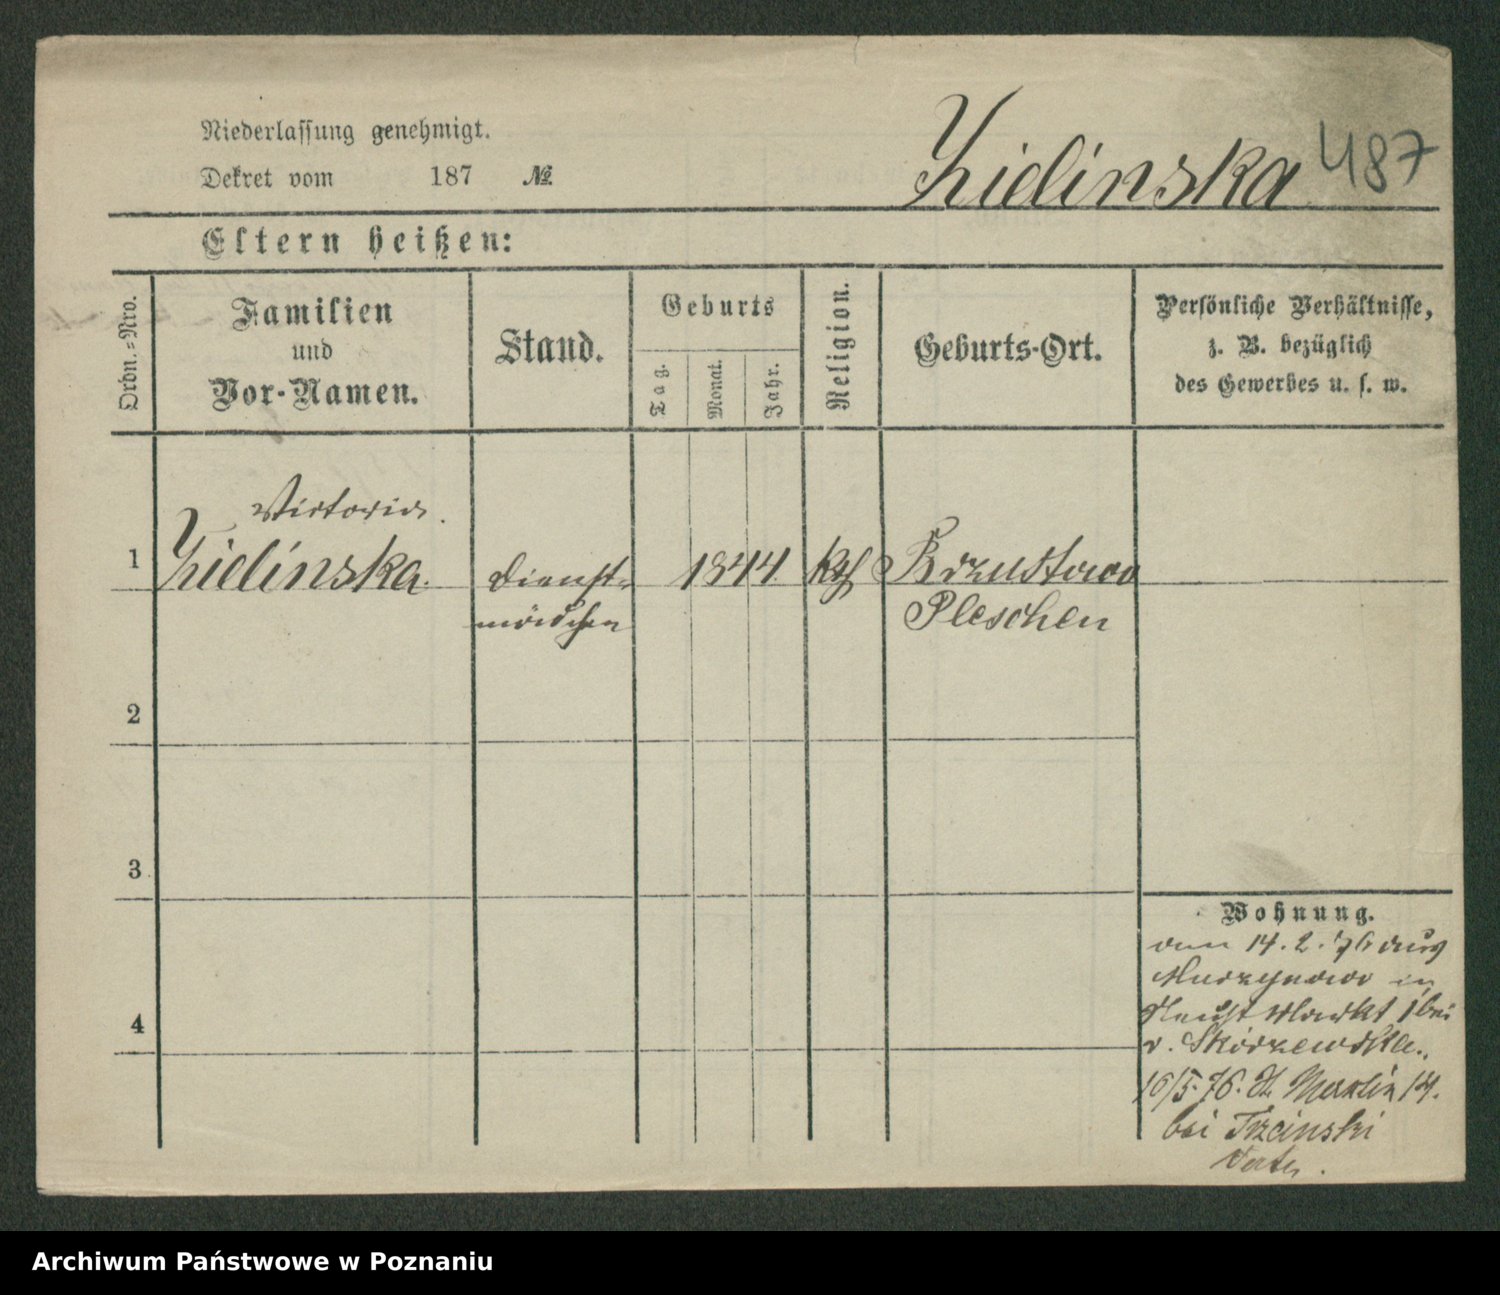 Niederlassung genehmigt.
Dekret vom 187 №
Zielinska 487
Eltern heißen:
Ordn.-Nro.
Familien
und
Vor-Namen.
Stand.
Geburts
Tag.
Monat.
Jahr.
Religion.
Geburts-Ort.
Persönliche Verhältnisse,
z. B. bezüglich
des Gewerbes u. s. w.
Victoria
1 Zielinska. Dienst- 1844. kth Brzustowo
mädchen Pleschen
2
3
4
Wohnung.
14. 2. 76 aus
Murzynowo in
Neust Markt 1 bei
v. Skorzewska.
16/5. 76. St. Martin 14.
bei Trzcinski
Archiwum Państwowe w Poznaniu